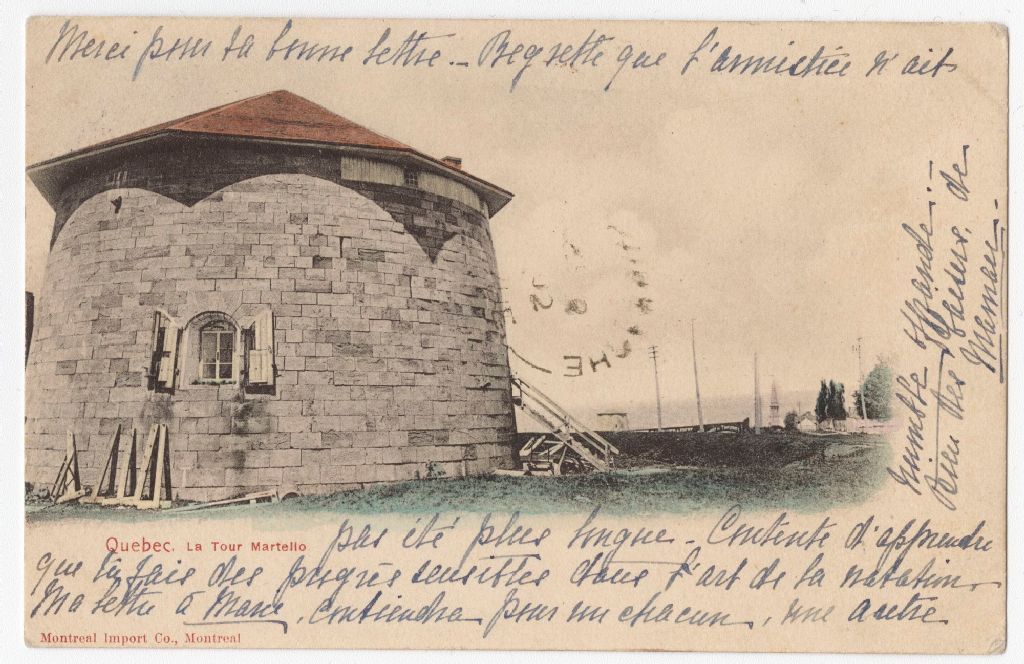 Merci pour ta bonne lettre. - Regrette que l'armistice n'ait
pas été plus longue - Contente d'apprendre
que tu fais des progrès sensibles dans l'art de la natation.
Ma lettre à Marie, contiendra pour un chacun, une autre
offrande :
Reçu des de
Quebec. La Tour Martello
Montreal Import Co., Montreal